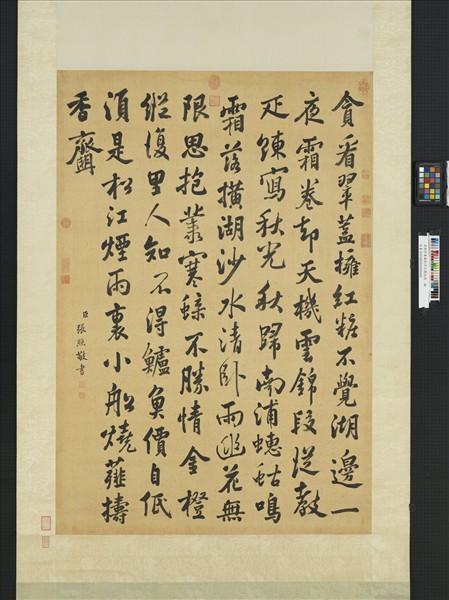 貪看翠蓋擁紅粧不覺湖邊一
夜霜卷却天機雲錦段從教
疋練寫秋光秋歸南浦蟪蛄鳴
霜落橫湖沙水清臥雨幽花無
限思抱叢寒蝶不勝情金橙
縱復里人知不得鱸魚價自低
須是松江煙雨裏小船燒薤擣
香齏
臣張照敬書